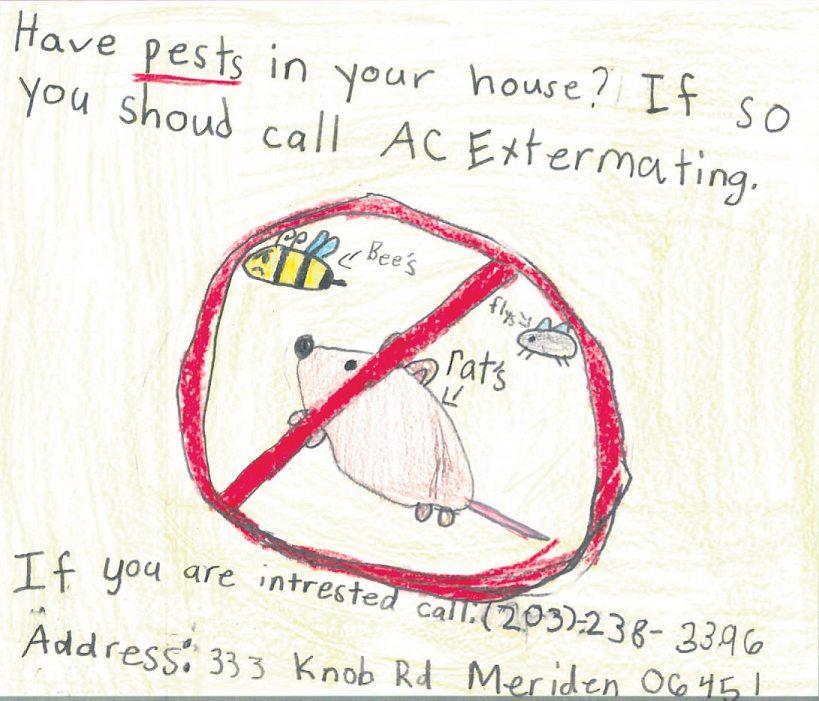 Have pests in your house? If so
you shoud call AC Extermating.
Bee's
flys
rat's
If you are intrested call:(203)-238-3396
Address: 333 Knob Rd Meriden 06451